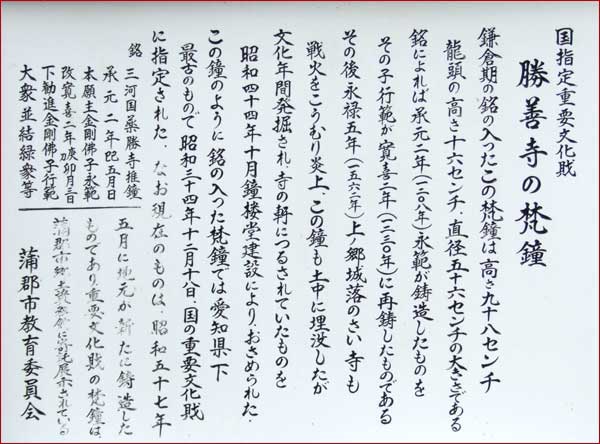 国指定重要文化財
勝善寺の梵鐘
鎌倉期の銘の入ったこの梵鐘は高さ九十八センチ
龍頭の高さ十六センチ、直径五十六センチの大きさである
銘によれば承元二年(一二〇八年)永範が鋳造したものを
その子行範が寛喜二年(一二三〇年)に再鋳したものである
その後永禄五年(一五六二年)上ノ郷城落のさい寺も
戦火をこうむり炎上、この鐘も土中に埋没したが
文化年間発掘され、寺の軒につるされていたものを
昭和四十四年十月鐘楼堂建設により、おさめられた。
この鐘のように銘の入った梵鐘では愛知県下
最古のもので昭和三十四年十二月十八日、国の重要文化財
に指定された。なお現在のものは、昭和五十七年
五月に地元が新たに鋳造した
ものであり重要文化財の梵鐘は、
蒲郡市郷土資料館に寄託展示されている
銘
三河国薬勝寺推鐘
承元二年 五月日
本願主金剛佛子永範
改寛喜二年庚寅卯月三日
下勧進金剛佛子行範
大衆並結緑衆等
蒲郡市教育委員会